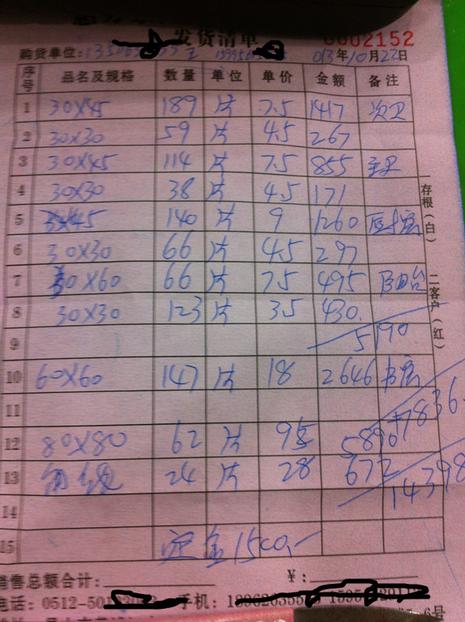 发货清单 0002152
购货单位: 013年10月22日
序号 品名及规格 数量 单位 单价 金额 备注
1 30×45 189 片 7.5 1417 次卫
2 30×30 59 片 4.5 267
3 30×45 114 片 7.5 855 主卫
4 30×30 38 片 4.5 171
5 30×45 140 片 9 1260 厨房
6 30×30 66 片 4.5 297
7 30×60 66 片 7.5 495 阳台
8 30×30 123 片 3.5 430.
9 5190
10 60×60 147 片 18 2646 书房
11 +7836
12 80×80 62 片 95 5890
13 24 片 28 672
14398
14
15 定金1500.-
存根(白) 二客户(红)
销售总额合计: ¥:
电话: 0512-50 手机:
6号